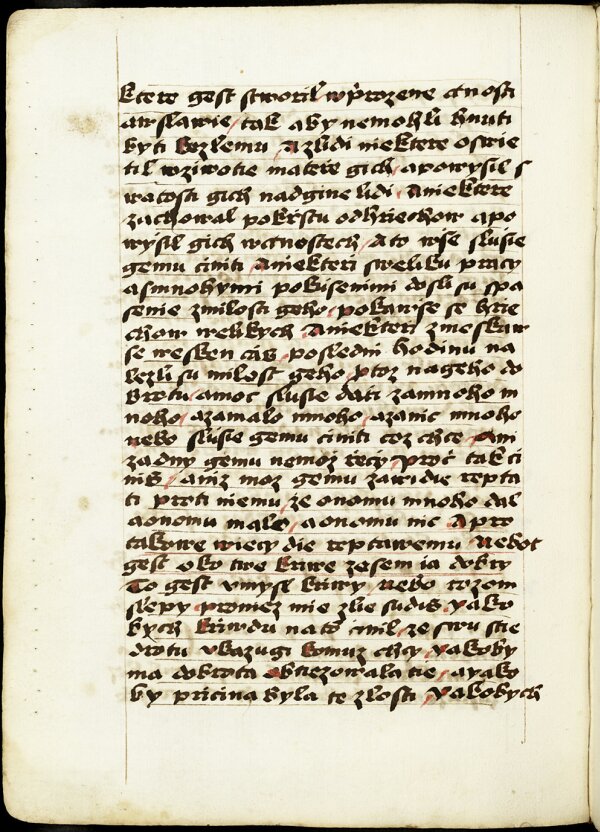 ktere gest stworil w prozene ctnosti
aw slawie / tak aby nemohli hnuti
byti kezlemu A zlidi niektere oswie
til wziwotie matere gich / apowysil s
watosti gich nadgine lidi / Aniektere
zachowal pokrstu odhriechow apo
wysil gich wctnostech / Ato wse slusie
gemu ciniti / Aniekteri sweliku pracy
asmnohymi pokusenimi dosli su spa
senie zmilosti geho / pokawse se hrie
chow welikych Aniekteri zmeskaw
se wesken cas / posledni hodinu na
lezli su milost geho / ptoz nageho do
brotu / amoc slusie dati zamnoho m
noho / azamalo mnoho / azanic mnoho
nebo slusie gemu ciniti coz chce / Ani
zadny gemu nemoz rzecy / proc tak ci
nis / aniz moz gemu zawidie repta
ti proti niemu / ze onomu mnoho dal
aonomu malo / aonomu nic Apro
takowe wiecy die reptawemu Nebot
gest oko twe kriwe zesem ia dobry
To gest vmysl kriwy / nebo rozom
slepy promiez mie zlie sudis yako
bych kriwdu nato cinil / ze swu stie
drotu vkazugi komuz chcy / yakoby
ma dobrota obtiezowala tie / ayako
by pricina byla te zlosti / Yakobych